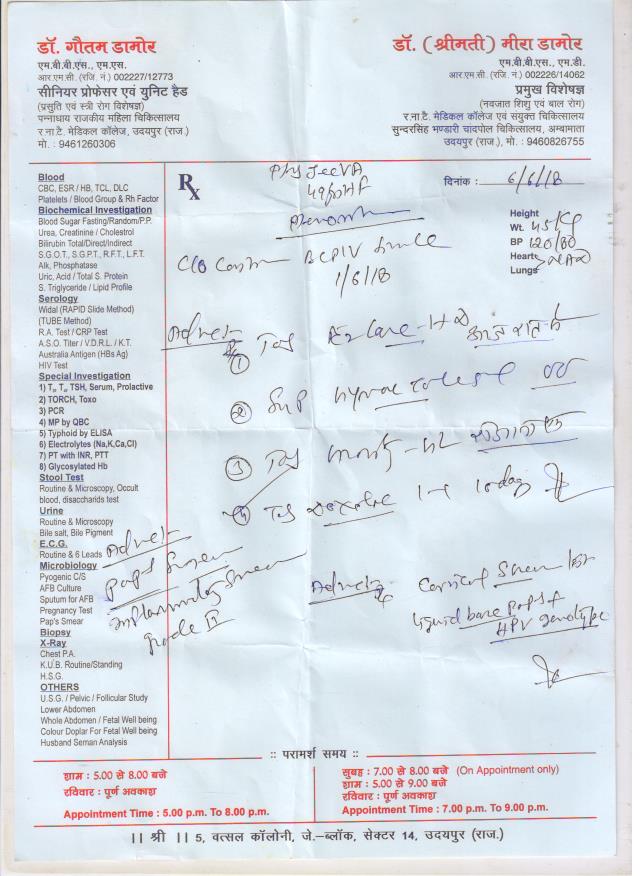 डॉ. गौतम डामोर
एम.बी.बी.एस., एम.एस.
आर.एम.सी. (रजि. नं.) 002227/12773
सीनियर प्रोफेसर एवं युनिट हैड
(प्रसुति एवं स्त्री रोग विशेषज्ञ)
पन्नाधाय राजकीय महिला चिकित्सालय
र.ना.टै. मेडिकल कॉलेज, उदयपुर (राज.)
मो. : 9461260306
डॉ. (श्रीमती) मीरा डामोर
एम.बी.बी.एस., एम.डी.
आर.एम.सी. (रजि. नं.) 002226/14062
प्रमुख विशेषज्ञ
(नवजात शिशु एवं बाल रोग)
र.ना.टै. मेडिकल कॉलेज एवं संयुक्त चिकित्सालय
सुन्दरसिंह भण्डारी चादपोल चिकित्सालय, अम्बामाता
उदयपुर (राज.), मो. : 9460826755
Blood
CBC, ESR / HB, TCL, DLC
Platelets / Blood Group & Rh Factor
Biochemical Investigation
Blood Sugar Fasting/Random/P.P.
Urea, Creatinine / Cholestrol
Bilirubin Total/Direct/Indirect
S.G.O.T., S.G.P.T., R.F.T., L.F.T.
Alk, Phosphatase
Uric, Acid / Total S. Protein
S. Triglyceride / Lipid Profile
Serology
Widal (RAPID Slide Method)
(TUBE Method)
R.A. Test / CRP Test
A.S.O. Titer / V.D.R.L. / K.T.
Australia Antigen (HBs Ag)
HIV Test
Special Investigation
1) T₃, T₄, TSH, Serum, Prolactive
2) TORCH, Toxo
3) PCR
4) MP by QBC
5) Typhoid by ELISA
6) Electrolytes (Na,K,Ca,Cl)
7) PT with INR, PTT
8) Glycosylated Hb
Stool Test
Routine & Microscopy, Occult
blood, disaccharids test
Urine
Routine & Microscopy
Bile salt, Bile Pigment
E.C.G.
Routine & 6 Leads
Microbiology
Pyogenic C/S
AFB Culture
Sputum for AFB
Pregnancy Test
Pap's Smear
Biopsy
X-Ray
Chest P.A.
K.U.B. Routine/Standing
H.S.G.
OTHERS
U.S.G. / Pelvic / Follicular Study
Lower Abdomen
Whole Abdomen / Fetal Well being
Colour Doplar For Fetal Well being
Husband Seman Analysis
Rx
JeeVA
दिनांक : 6/6/18
Height
Wt. 45 Kg
BP 120/80
Heart NAD
Lungs
C/O
1/6/18
Advice
1 Tab
2
3 Tab
4 Tab 1-1 10 days
Advice
Pap's Smear
Inflammatory Smear
Grade II
Advice Cervical Screen
liquid base pap's +
HPV genotype
:: परामर्श समय ::
शाम : 5.00 से 8.00 बजे
रविवार : पूर्ण अवकाश
Appointment Time : 5.00 p.m. To 8.00 p.m.
सुबह : 7.00 से 8.00 बजे (On Appointment only)
शाम : 5.00 से 9.00 बजे
रविवार : पूर्ण अवकाश
Appointment Time : 7.00 p.m. To 9.00 p.m.
।। श्री ।। 5, वत्सल कॉलोनी, जे.-ब्लॉक, सेक्टर 14, उदयपुर (राज.)